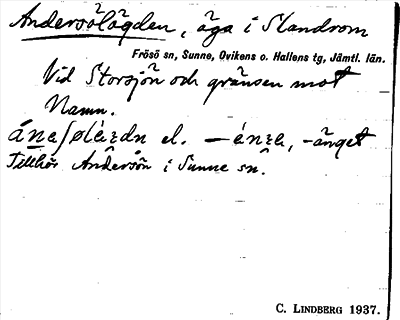 Andersölägden, äga i Slandrom
Frösö sn, Sunne, Ovikens o. Hallens tg, Jämtl. län.
Vid Storsjön och gränsen mot
Namn.
el. — -änget
Tillhör Andersön i Sunne sn.
C. LINDBERG 1937.